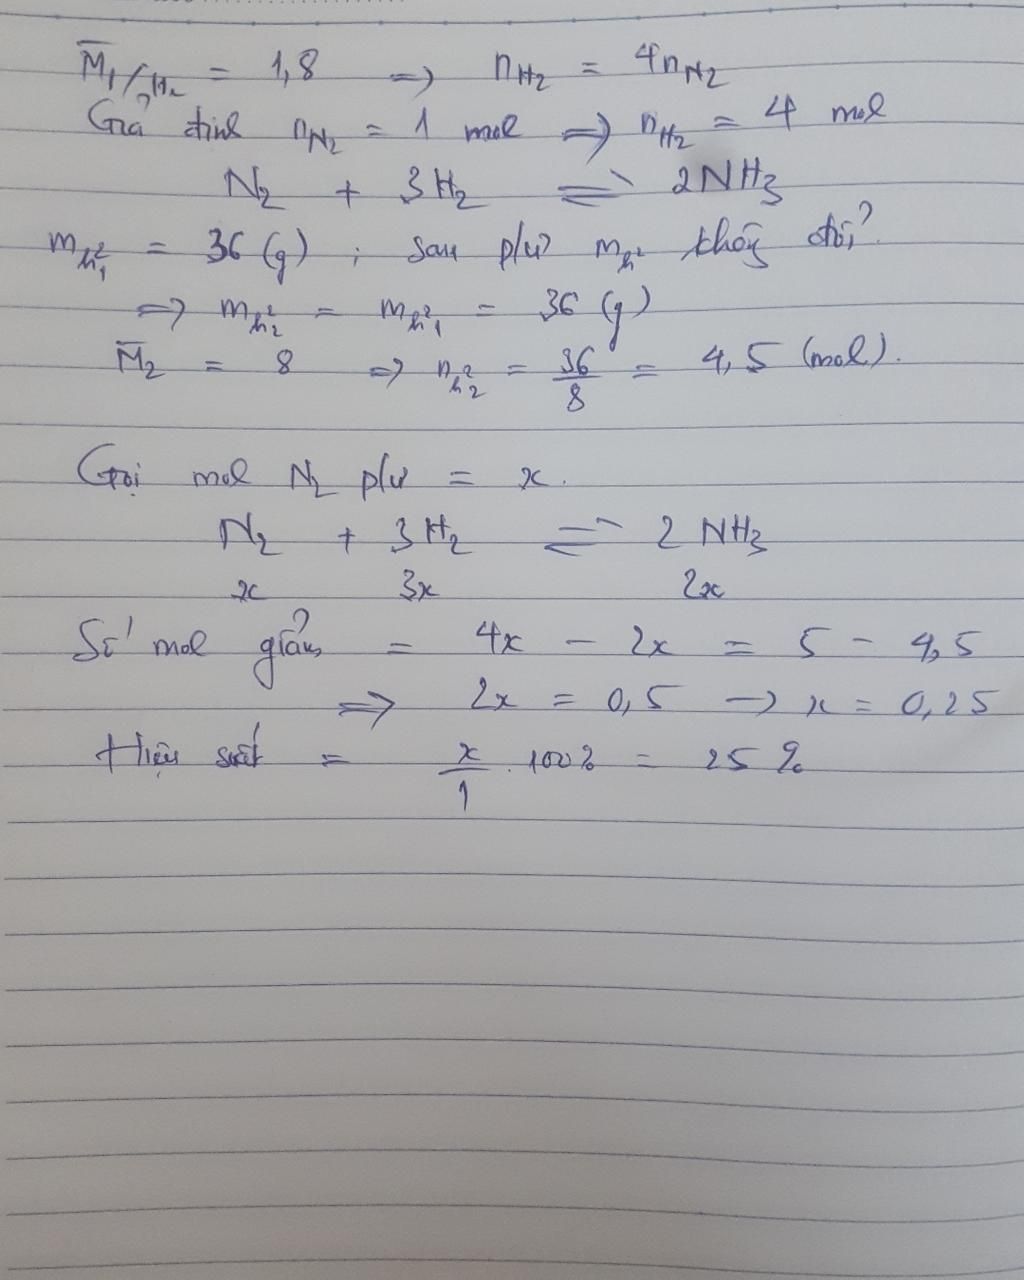 M̄₁/H₂ = 1,8 => nH₂ = 4nN₂
Giả định nN₂ = 1 mol => nH₂ = 4 mol
N₂ + 3H₂ ⇌ 2NH₃
mh²₁ = 36 (g) ; sau p/ư mh² không đổi
=> mh²₂ = mh²₁ = 36 (g)
M̄₂ = 8 => nh²₂ = 36/8 = 4,5 (mol).
Gọi mol N₂ p/ư = x.
N₂ + 3H₂ ⇌ 2 NH₃
x 3x 2x
Số mol giảm = 4x - 2x = 5 - 4,5
=> 2x = 0,5 -> x = 0,25
Hiệu suất = x/1 . 100% = 25 %